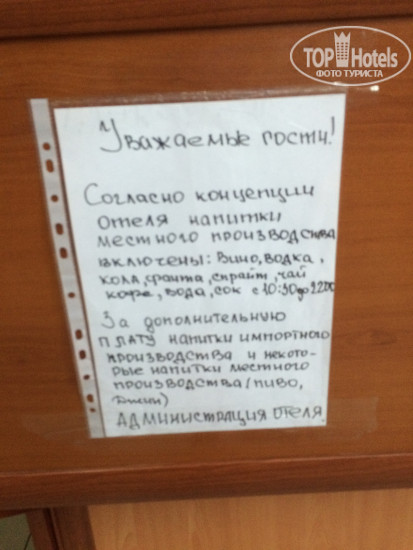 TOP Hotels
ФОТО ТУРИСТА
Уважаемые гости!
Согласно концепции
отеля напитки
местного производства
включены: Вино, водка,
кола, фанта, спрайт, чай
кофе, вода, сок с 10:30 до 22:00
За дополнительную
плату напитки импортного
производства и некото-
рые напитки местного
производства (пиво,
джин)
Администрация отеля.